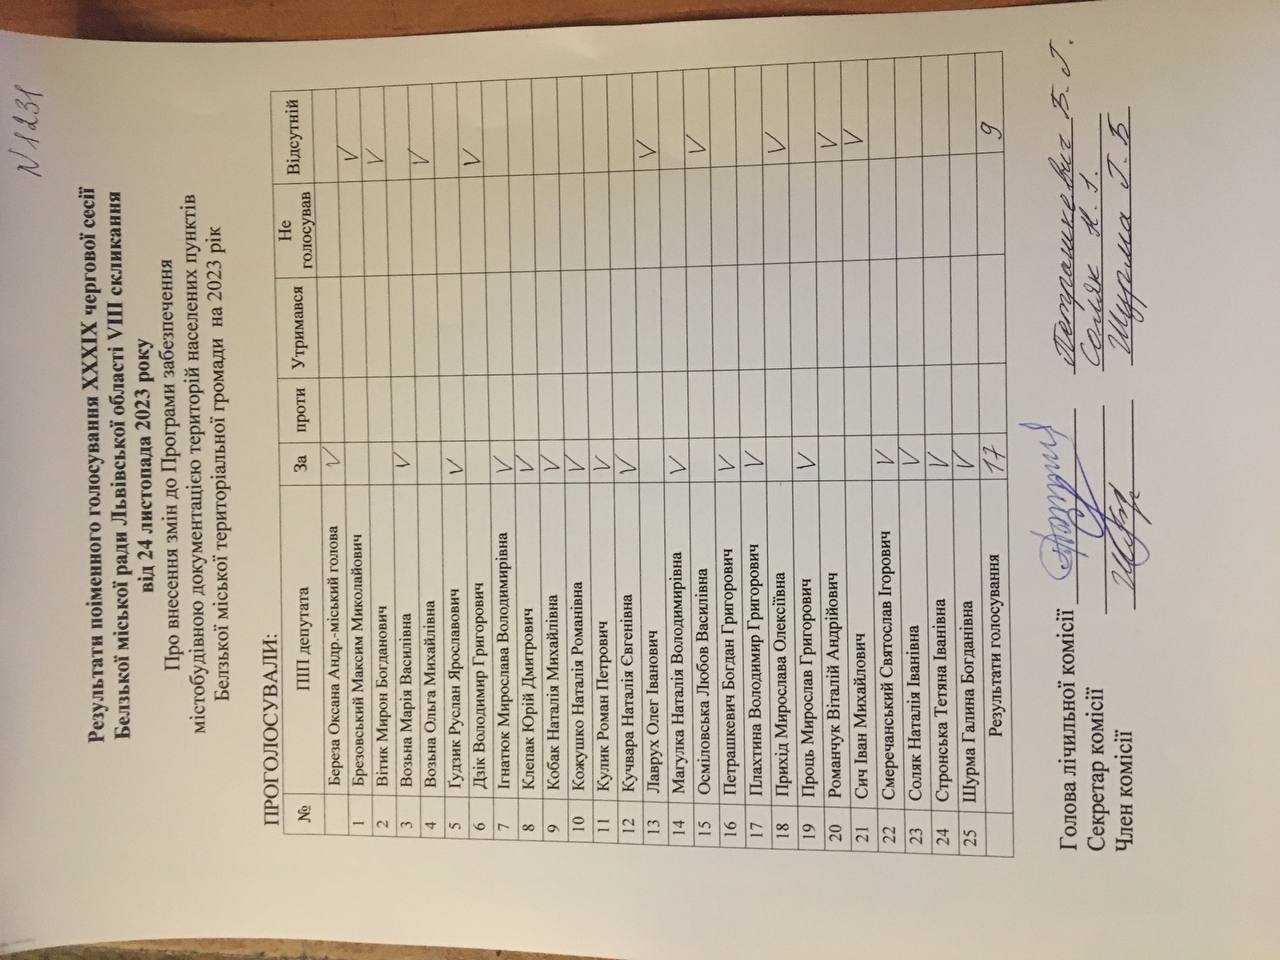 N 1231
Результати поіменного голосування XXXIX чергової сесії
Белзької міської ради Львівської області VIII скликання
від 24 листопада 2023 року
Про внесення змін до Програми забезпечення
містобудівною документацією територій населених пунктів
Белзької міської територіальної громади на 2023 рік
ПРОГОЛОСУВАЛИ:
№ ПІП депутата За проти Утримався Не голосував Відсутній
Береза Оксана Андр.-міський голова V
1 Брезовський Максим Миколайович V
2 Вітик Мирон Богданович V
3 Возьна Марія Василівна V
4 Возьна Ольга Михайлівна V
5 Гудзик Руслан Ярославович V
6 Дзік Володимир Григорович V
7 Ігнатюк Мирослава Володимирівна V
8 Клепак Юрій Дмитрович V
9 Кобак Наталія Михайлівна V
10 Кожушко Наталія Романівна V
11 Кулик Роман Петрович V
12 Кучвара Наталія Євгенівна V
13 Лаврух Олег Іванович V
14 Магулка Наталія Володимирівна V
15 Осміловська Любов Василівна V
16 Петрашкевич Богдан Григорович V
17 Плахтина Володимир Григорович V
18 Прихід Мирослава Олексіївна V
19 Проць Мирослав Григорович V
20 Романчук Віталій Андрійович V
21 Сич Іван Михайлович V
22 Смеречанський Святослав Ігорович V
23 Соляк Наталія Іванівна V
24 Стронська Тетяна Іванівна V
25 Шурма Галина Богданівна V
Результати голосування 17 9
Голова лічильної комісії Петрашкевич Б. Г.
Секретар комісії Соляк Н. І.
Член комісії Шурма Г. Б